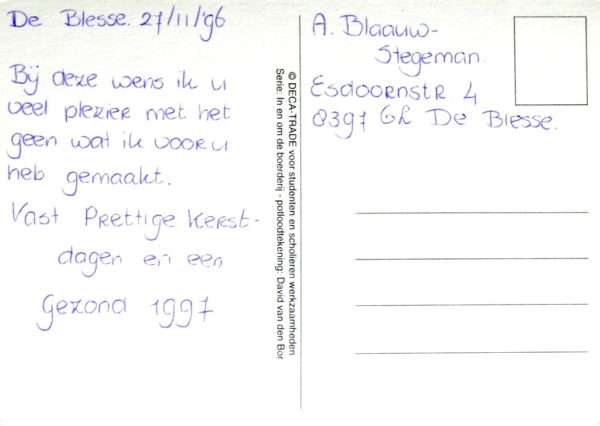 De Blesse. 27/11/'96
Bij deze wens ik u
veel plezier met het
geen wat ik voor u
heb gemaakt.
Vast Prettige Kerst-
dagen en een
gezond 1997
© DECA-TRADE voor studenten en scholieren werkzaamheden
Serie: In en om de boerderij - potloodtekening: David van den Bor
A. Blaauw-
Stegeman.
Esdoornstr. 4
8397 GL De Blesse.